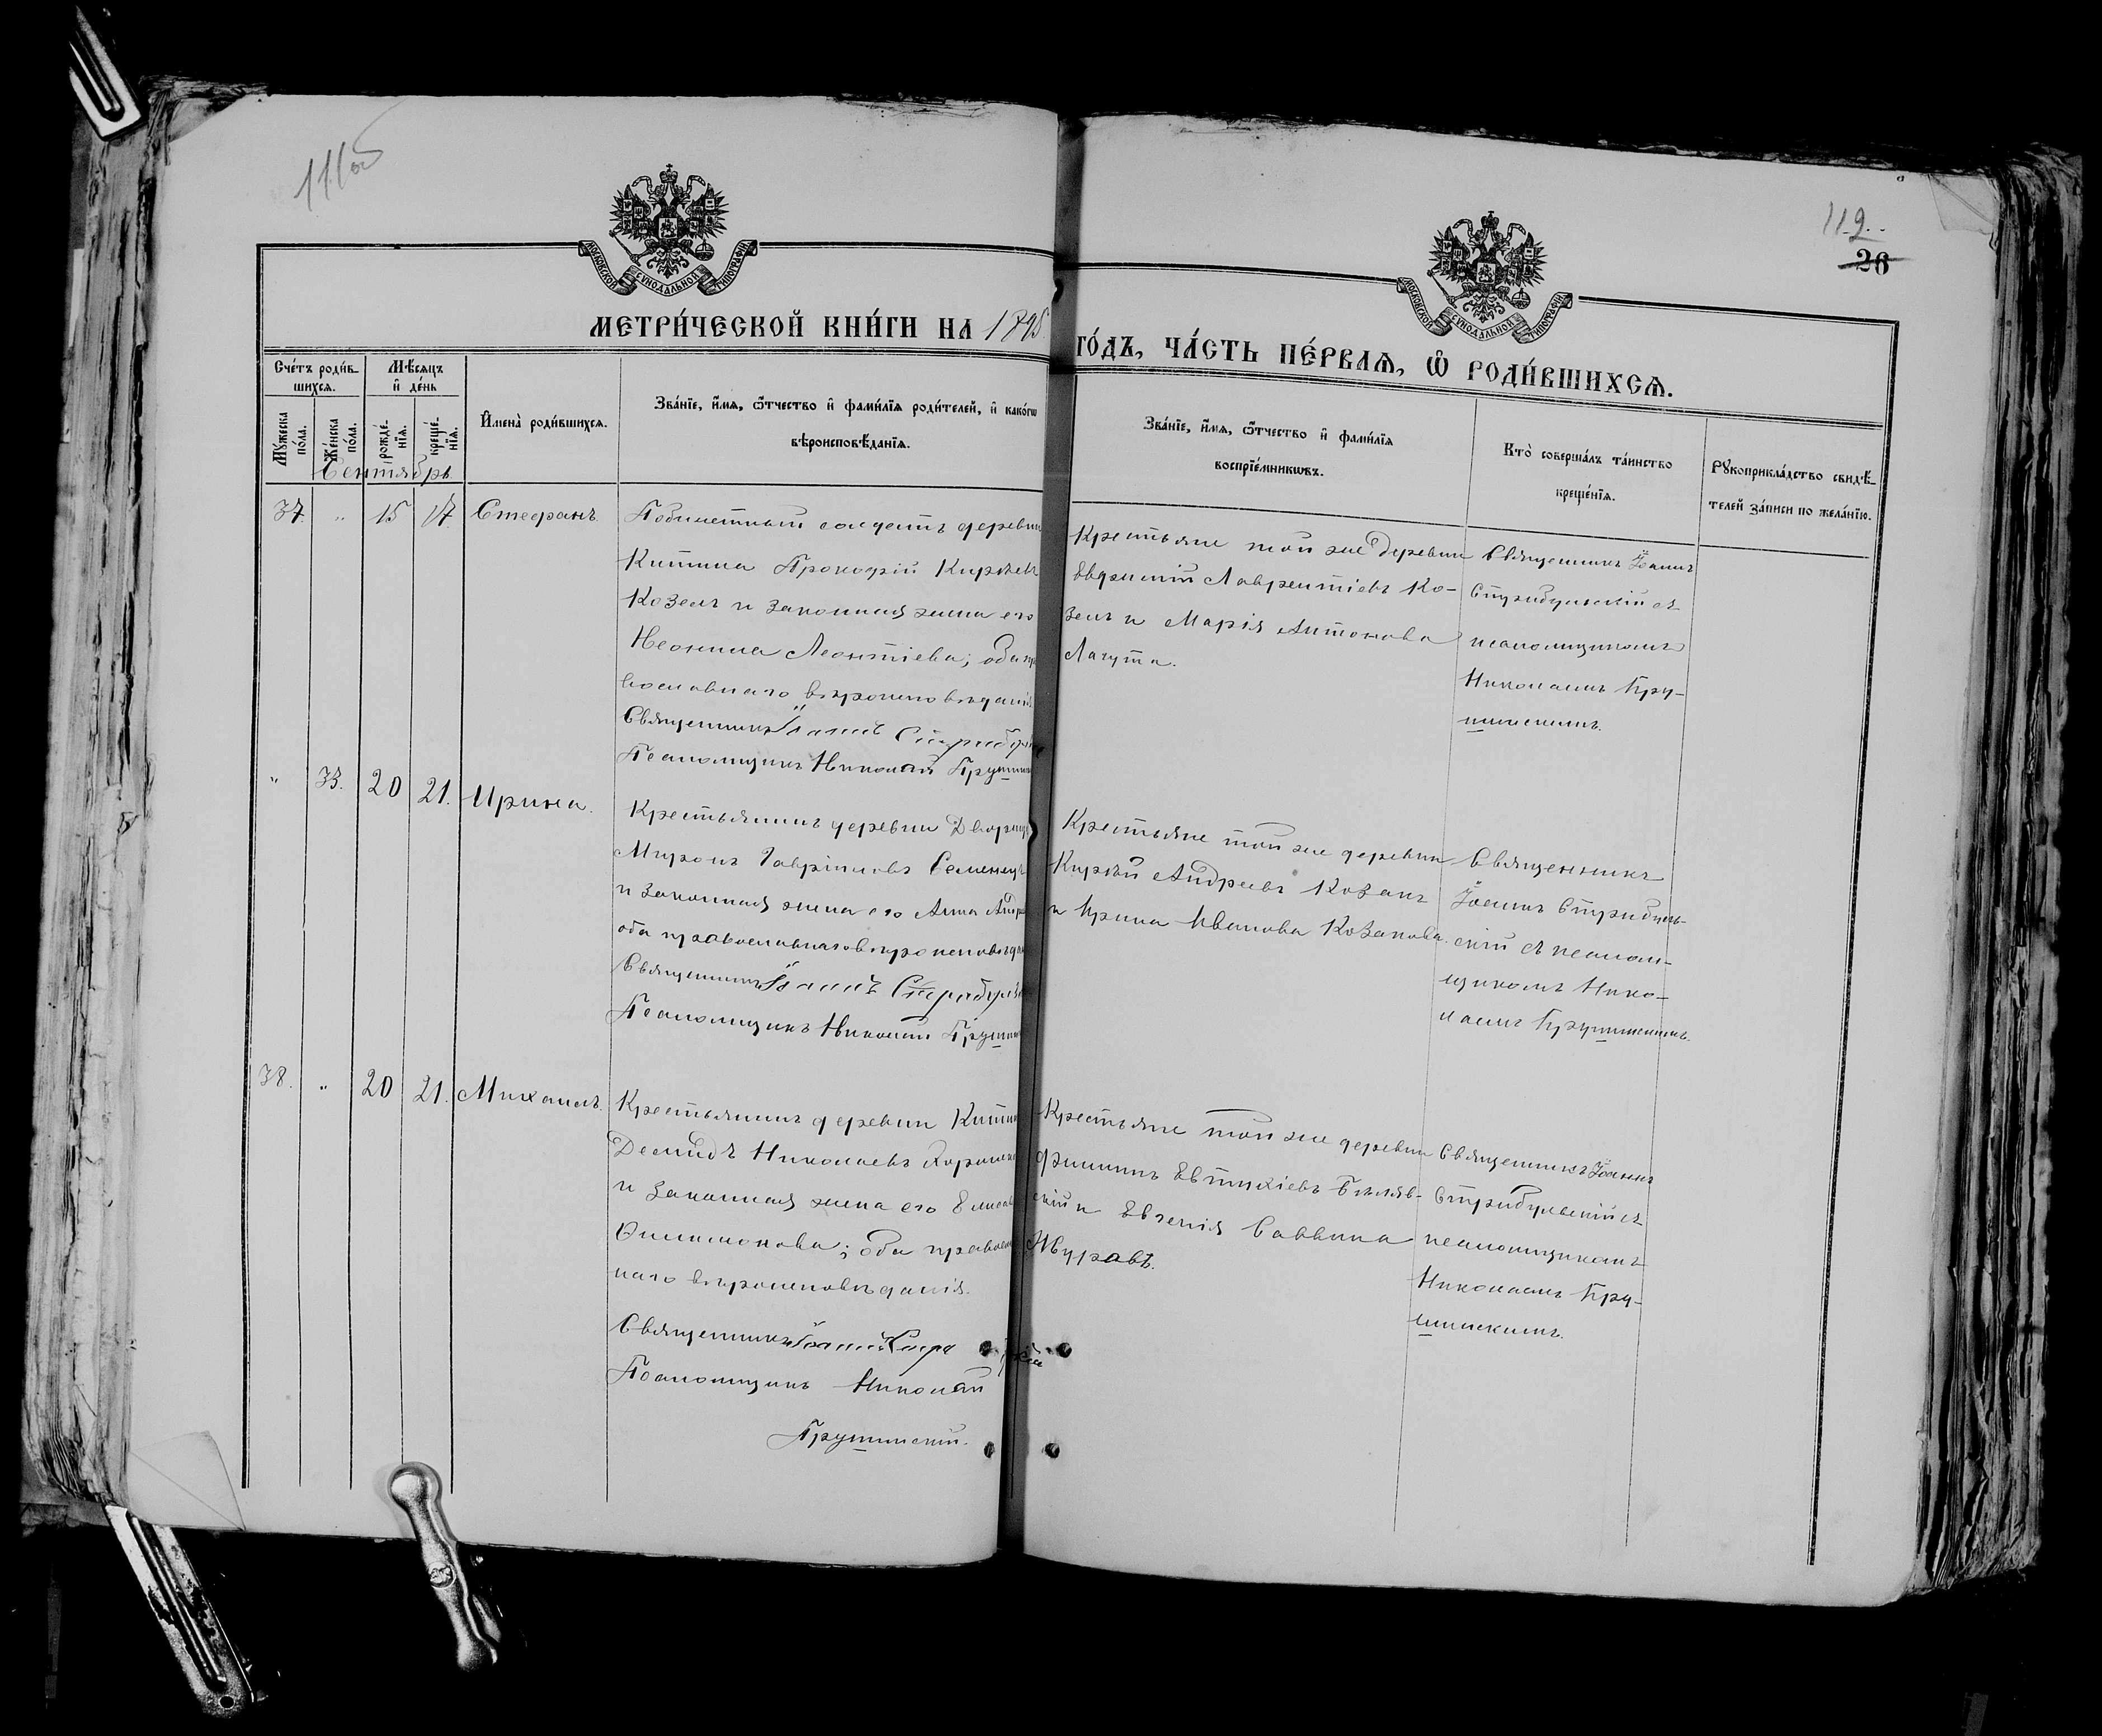 111об
112
26
МОСКОВСКОЙ СУНОДАЛЬНОЙ ТИПОГРАФІИ
МОСКОВСКОЙ СУНОДАЛЬНОЙ ТИПОГРАФІИ
МЕТРИ́ЧЕСКОЙ КНИ́ГИ НА 1895 ГО́ДЪ, ЧА́СТЬ ПЕ́РВАѦ, Ѽ РОДИ́ВШИХСѦ.
Сче́тъ роди́в-
шихсѧ.
Мꙋ́жеска по́ла.
Же́нска по́ла.
Мѣ́сѧцъ
и҆ де́нь
рожде́-
нїѧ.
креще́-
нїѧ.
И҆мена̀ роди́вшихсѧ.
Зва́нїе, и҆́мѧ, ѻ҆́тчество и҆ фами́лїѧ роди́телей, и҆ како́гѡ
вѣроисповѣ́данїѧ.
Зва́нїе, и҆́мѧ, ѻ҆́тчество и҆ фами́лїѧ
воспрїе́мникѡвъ.
Кто̀ соверша́лъ та́инство
креще́нїѧ.
Рꙋкоприкла́дство свидѣ́-
телей за́писи по жела́нїю.
Сентябрь
37. " 15 17 Стефанъ.
Побилетный солдатъ деревни
Китина Прокофій
Козелъ и законная жена его
Неонила Леонтіева; оба пра
вославнаго вѣроисповѣданія
Священникъ Іоаннъ
Псаломщикъ Николай
Крестьяне той же деревни
Евфимій Лаврентіевъ Ко-
зелъ и Марія Антонова
Лагута.
Священникъ Іоаннъ
Стрибульскій съ
псаломщикомъ
Николаемъ Пру-
шинскимъ.
" 33. 20 21. Ирина.
Крестьянинъ деревни
Миронъ Гавріиловъ Семенец
и законная жена его Анна
оба православнаго вѣроисповѣдан
Священникъ Іоаннъ
Псаломщикъ Николай
Крестьяне той же деревни
Кирѣй Андреевъ Козакъ
и Ирина Иванова Козакова.
Священникъ
Іоаннъ Стрибуль-
скій съ псалом-
щикомъ Нико-
лаемъ Прушинскимъ.
38. " 20 21. Михаилъ.
Крестьянинъ деревни Китин
Демидъ Николаевъ
и законная жена его Елисав
Филимонова; оба правосл
наго вѣроисповѣданія.
Священникъ Іоаннъ
Псаломщикъ Николай
Прушинскій.
Крестьяне той же деревни
Филиппъ Евтихіевъ Бѣляв-
скій и Евгенія Саввина
Журавъ.
Священникъ Іоаннъ
Стрибульскій съ
псаломщикомъ
Николаемъ Пру-
шинскимъ.